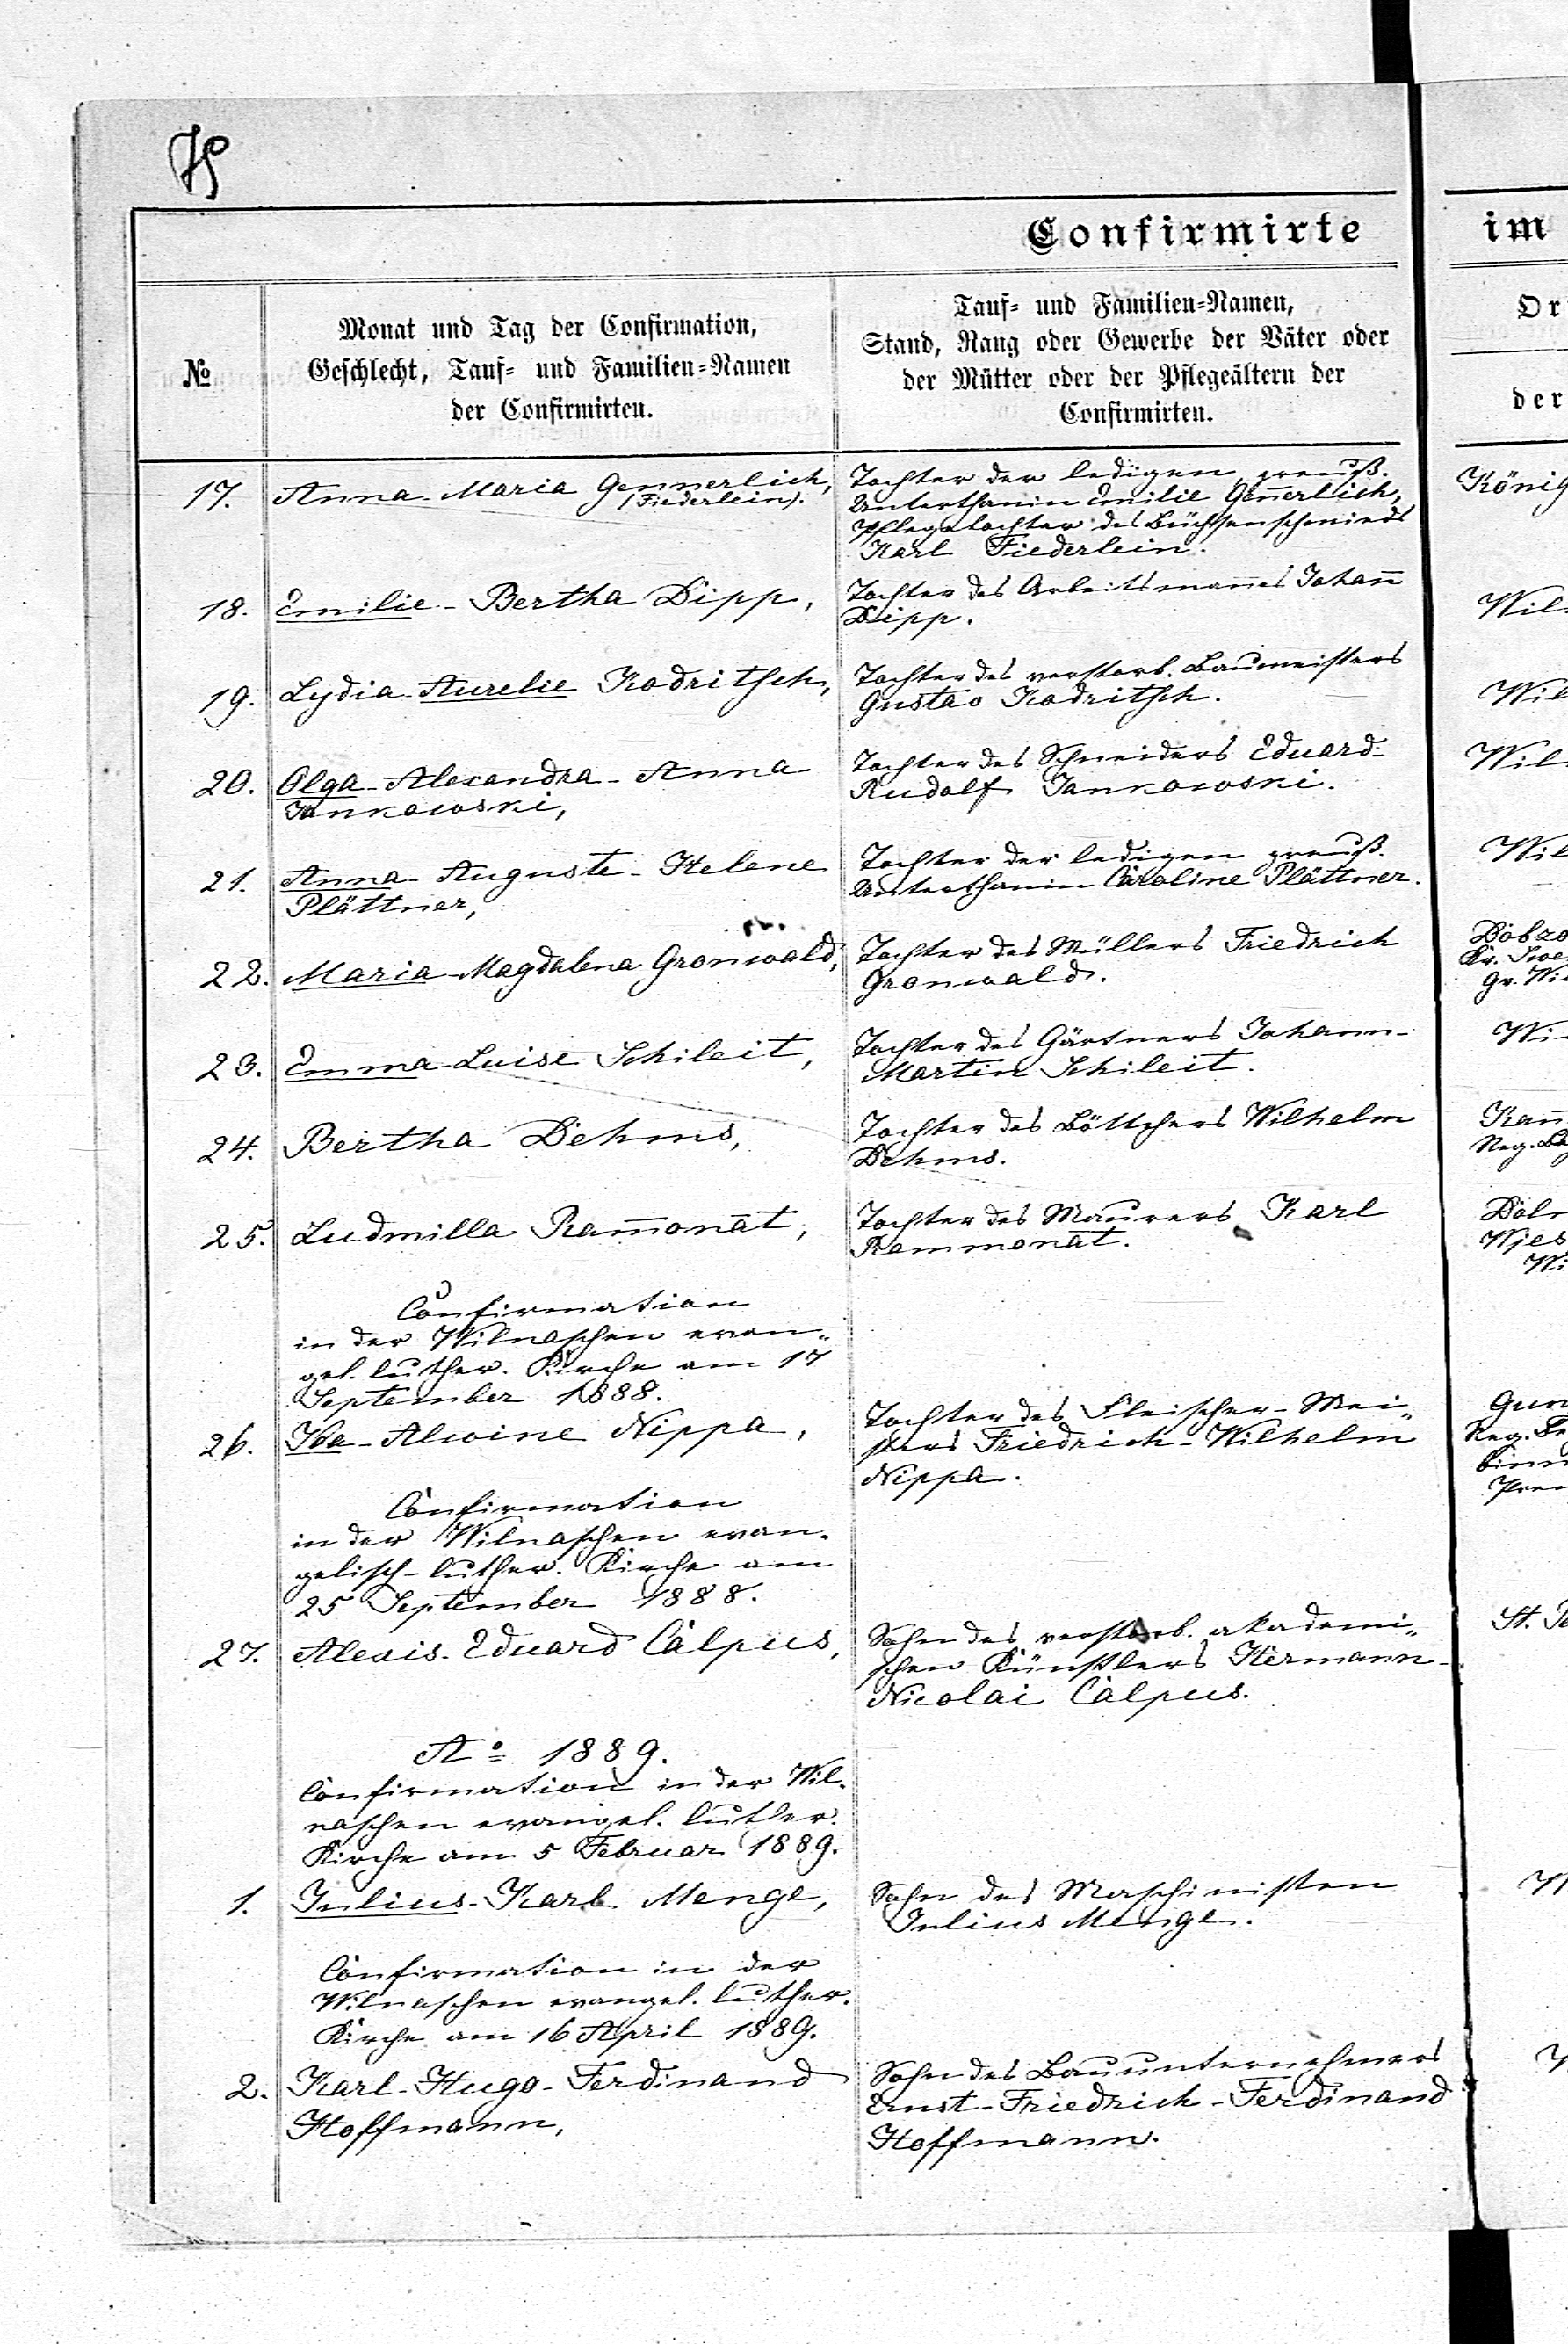 Confirmirte
im
№
Monat und Tag der Confirmation,
Geschlecht, Tauf- und Familien-Namen
der Confirmirten.
Tauf- und Familien-Namen,
Stand, Rang oder Gewerbe der Väter oder
der Mütter oder der Pflegeältern der
Confirmirten.
Or
der
17. Anna-Maria Gennerlich,
(Fiederlein).
Tochter der ledigen preuß.
Unterthanin Emilie Gen̄erlich,
Pflegetochter des Büchsenschmieds
Karl Fiederlein.
König
18. Emilie-Bertha Dipp,
Tochter des Arbeitsman̄es Johan̄
Dipp.
Wil
19. Lydia-Aurelie Kodritsch,
Tochter des verstorb. Baumeisters
Gustav Kodritsch.
Wil
20. Olga-Alexandra-Anna
Jankowski,
Tochter des Schneiders Eduard-
Rudolf Jankowski.
Wil
21. Anna-Auguste-Helene
Plättner,
Tochter der ledigen preuß.
Unterthanin Caroline Plättner.
Wil
22. Maria-Magdalena Gronwald,
Tochter des Müllers Friedrich
Gronwald.
Dobro
Kr. Swe
Gv. Wi
23. Emma-Luise Schileit,
Tochter des Gärtners Johann-
Martin Schileit.
Wi
24. Bertha Dehms,
Tochter des Böttchers Wilhelm
Dehms.
Kan̄
Reg. Be
25. Ludmilla Ram̄onat,
Tochter des Maurers Karl
Rammonat.
Doln
Wjes
Wi
Confirmation
in der Wilnaschen evan-
gel. luther. Kirche am 17
September 1888.
26. Ida-Alwine Nippa,
Tochter des Fleischer-Mei-
sters Friedrich-Wilhelm
Nippa.
Gum
Reg.
binn
Preu
Confirmation
in der Wilnaschen evan-
gelisch-luther. Kirche am
25 September 1888.
27. Alexis-Eduard Calpus,
Sohn des verstorb. akademi-
schen Künstlers Hermann-
Nicolai Calpus.
St. Pe
Aº 1889.
Confirmation in der Wil-
naschen evangel. luther.
Kirche am 5 Februar 1889.
1. Julius-Karl Menge,
Sohn des Maschinisten
Julius Menge.
W
Confirmation in der
Wilnaschen evangel. luther.
Kirche am 16 April 1889.
2. Karl-Hugo-Ferdinand
Hoffmann,
Sohn des Bauunternehmers
Ernst-Friedrich-Ferdinand
Hoffmann.